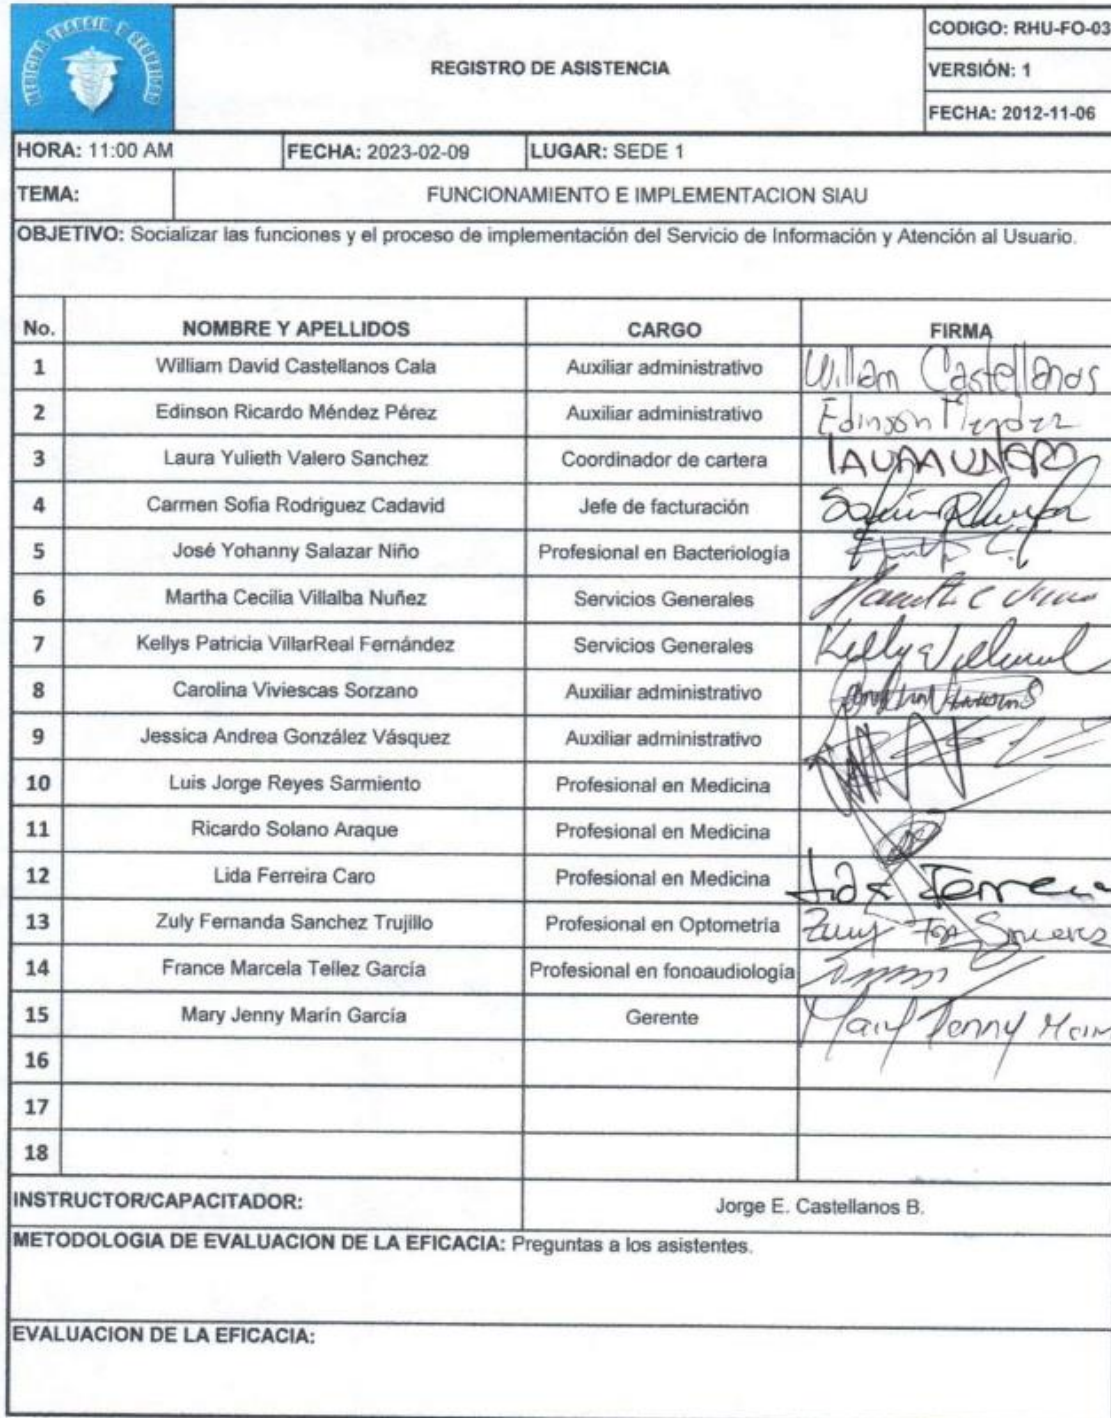 MEDICINA TRABAJO Y SEGURIDAD
REGISTRO DE ASISTENCIA
CODIGO: RHU-FO-03
VERSIÓN: 1
FECHA: 2012-11-06
HORA: 11:00 AM FECHA: 2023-02-09 LUGAR: SEDE 1
TEMA: FUNCIONAMIENTO E IMPLEMENTACION SIAU
OBJETIVO: Socializar las funciones y el proceso de implementación del Servicio de Información y Atención al Usuario.
No. NOMBRE Y APELLIDOS CARGO FIRMA
1 William David Castellanos Cala Auxiliar administrativo Willam Castellanos
2 Edinson Ricardo Méndez Pérez Auxiliar administrativo Edinson Mendez
3 Laura Yulieth Valero Sanchez Coordinador de cartera LAURA VALERO
4 Carmen Sofia Rodriguez Cadavid Jefe de facturación
5 José Yohanny Salazar Niño Profesional en Bacteriología
6 Martha Cecilia Villalba Nuñez Servicios Generales
7 Kellys Patricia VillarReal Fernández Servicios Generales
8 Carolina Viviescas Sorzano Auxiliar administrativo
9 Jessica Andrea González Vásquez Auxiliar administrativo
10 Luis Jorge Reyes Sarmiento Profesional en Medicina
11 Ricardo Solano Araque Profesional en Medicina
12 Lida Ferreira Caro Profesional en Medicina Lida
13 Zuly Fernanda Sanchez Trujillo Profesional en Optometría Zuly
14 France Marcela Tellez García Profesional en fonoaudiología
15 Mary Jenny Marín García Gerente Mary Jenny
16
17
18
INSTRUCTOR/CAPACITADOR: Jorge E. Castellanos B.
METODOLOGIA DE EVALUACION DE LA EFICACIA: Preguntas a los asistentes.
EVALUACION DE LA EFICACIA: